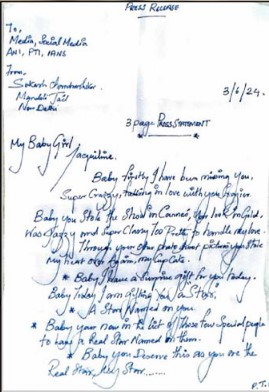 PRESS RELEASE
To,
Media, Social Media
ANI, PTI, IANS
From,
Sukash Chandrashekar
Mandoli Jail
New Delhi
3/6/24.
3 page PRESS STATEMENT
My Baby Girl
Jacqueline.
Baby firstly I have been missing you,
Super Crazyy, falling in love with you
Baby you Stole the Show in Cannes, your look in Gold,
Was Classy and Super Classy Too Pretty to handle my love.
Through your photo shoot pictures you Stole
my Heart over Again, my CupCake.
* Baby I have a Surprise gift for you Today.
Baby Today I am gifting you "a Star",
A Star Named on you.
* Baby your now in the list of those Few Special people
to have a Real Star Named on them.
* Baby you Deserve this as you are the
Real Star, my Star......
P.T.